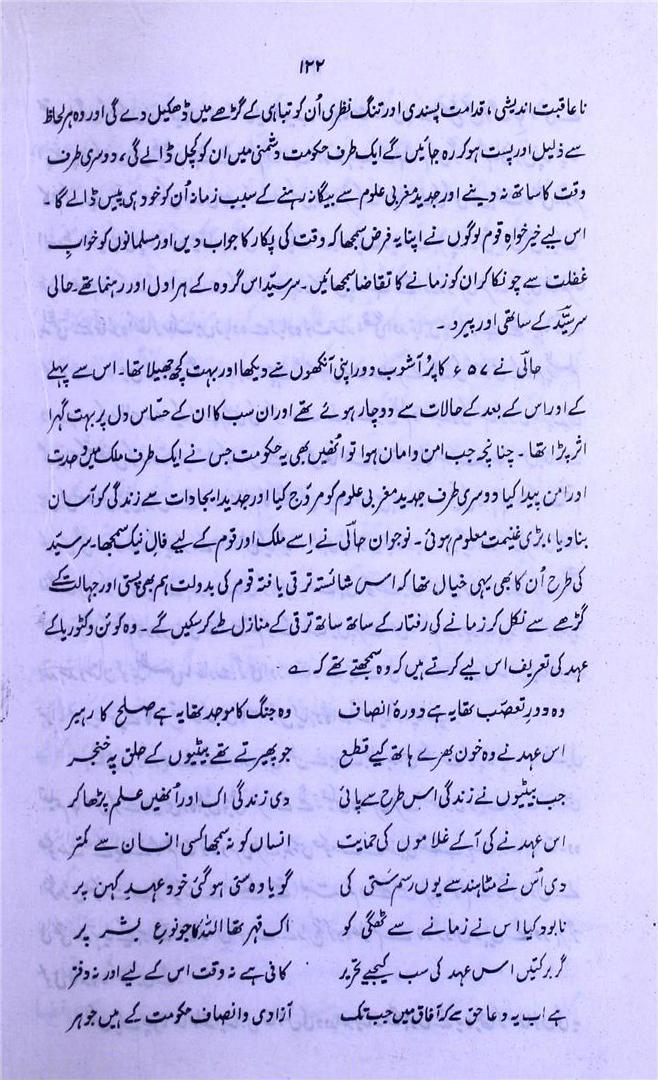 ۱۲۲
ناعاقبت اندیشی، قدامت پسندی اور تنگ نظری اُن کو تباہی کے گڑھے میں ڈھکیل دے گی اور وہ ہر لحاظ
سے ذلیل اور پست ہو کر رہ جائیں گے ایک طرف حکومت دشمنی میں ان کو کچل ڈالے گی، دوسری طرف
وقت کا ساتھ نہ دینے اور جدید مغربی علوم سے بیگانہ رہنے کے سبب زمانہ اُن کو خود ہی پیس ڈالے گا۔
اس لیے خیر خواہِ قوم لوگوں نے اپنا یہ فرض سمجھا کہ وقت کی پکار کا جواب دیں اور مسلمانوں کو خوابِ
غفلت سے چونکا کر ان کو زمانے کا تقاضا سمجھائیں۔ سرسیّد اس گروہ کے ہراول اور رہنما تھے۔ حالی
سرسیّد کے ساتھی اور پیرو۔
حالیؔ نے ۵۷ ء کا پُر آشوب دور اپنی آنکھوں سے دیکھا اور بہت کچھ جھیلا تھا۔ اس سے پہلے
کے اور اس کے بعد کے حالات سے دوچار ہوئے تھے اور ان سب کا ان کے حسّاس دل پر بہت گہرا
اثر پڑا تھا۔ چنانچہ جب امن و امان ہوا تو اُنھیں بھی یہ حکومت جس نے ایک طرف ملک میں وحدت
اور امن پیدا کیا دوسری طرف جدید مغربی علوم کو مروّج کیا اور جدید ایجادات سے زندگی کو آسان
بنا دیا، بڑی غنیمت معلوم ہوئی۔ نوجوان حالیؔ نے اِسے ملک اور قوم کے لیے فالِ نیک سمجھا۔ سرسیّد
کی طرح اُن کا بھی یہی خیال تھا کہ اس شائستہ ترقی یافتہ قوم کی بدولت ہم بھی پستی اور جہالت کے
گڑھے سے نکل کر زمانے کی رفتار کے ساتھ ساتھ ترقی کے منازل طے کر سکیں گے۔ وہ کوئن وکٹوریا کے
عہد کی تعریف اس لیے کرتے ہیں کہ وہ سمجھتے تھے کہ ؎
وہ دورِ تعصّب تھا یہ ہے دورۂ انصاف وہ جنگ کا موجد تھا یہ ہے صلح کا رہبر
اس عہد نے وہ خون بھرے ہاتھ کیے قطع جو پھیرتے تھے بیٹیوں کے حلق پہ خنجر
جب بیٹیوں نے زندگی اس طرح سے پائی دی زندگی اک اور اُنھیں علم پڑھا کر
اس عہد نے کی آکے غلاموں کی حمایت انساں کو نہ سمجھا کسی انسان سے کمتر
دی اُس نے مٹا ہند سے یوں رسم ستی کی گویا وہ ستی ہو گئی خود عہدِ کہن پر
نابود کیا اس نے زمانے سے ٹھگی کو اک قہر تھا اللہ کا جو نوعِ بشر پر
گر برکتیں اس عہد کی سب کیجیے تحریر کافی ہے نہ وقت اس کے لیے اور نہ دفتر
ہے اب یہ دعا حق سے کہ آفاق میں جب تک آزادی و انصاف حکومت کے ہیں جوہر